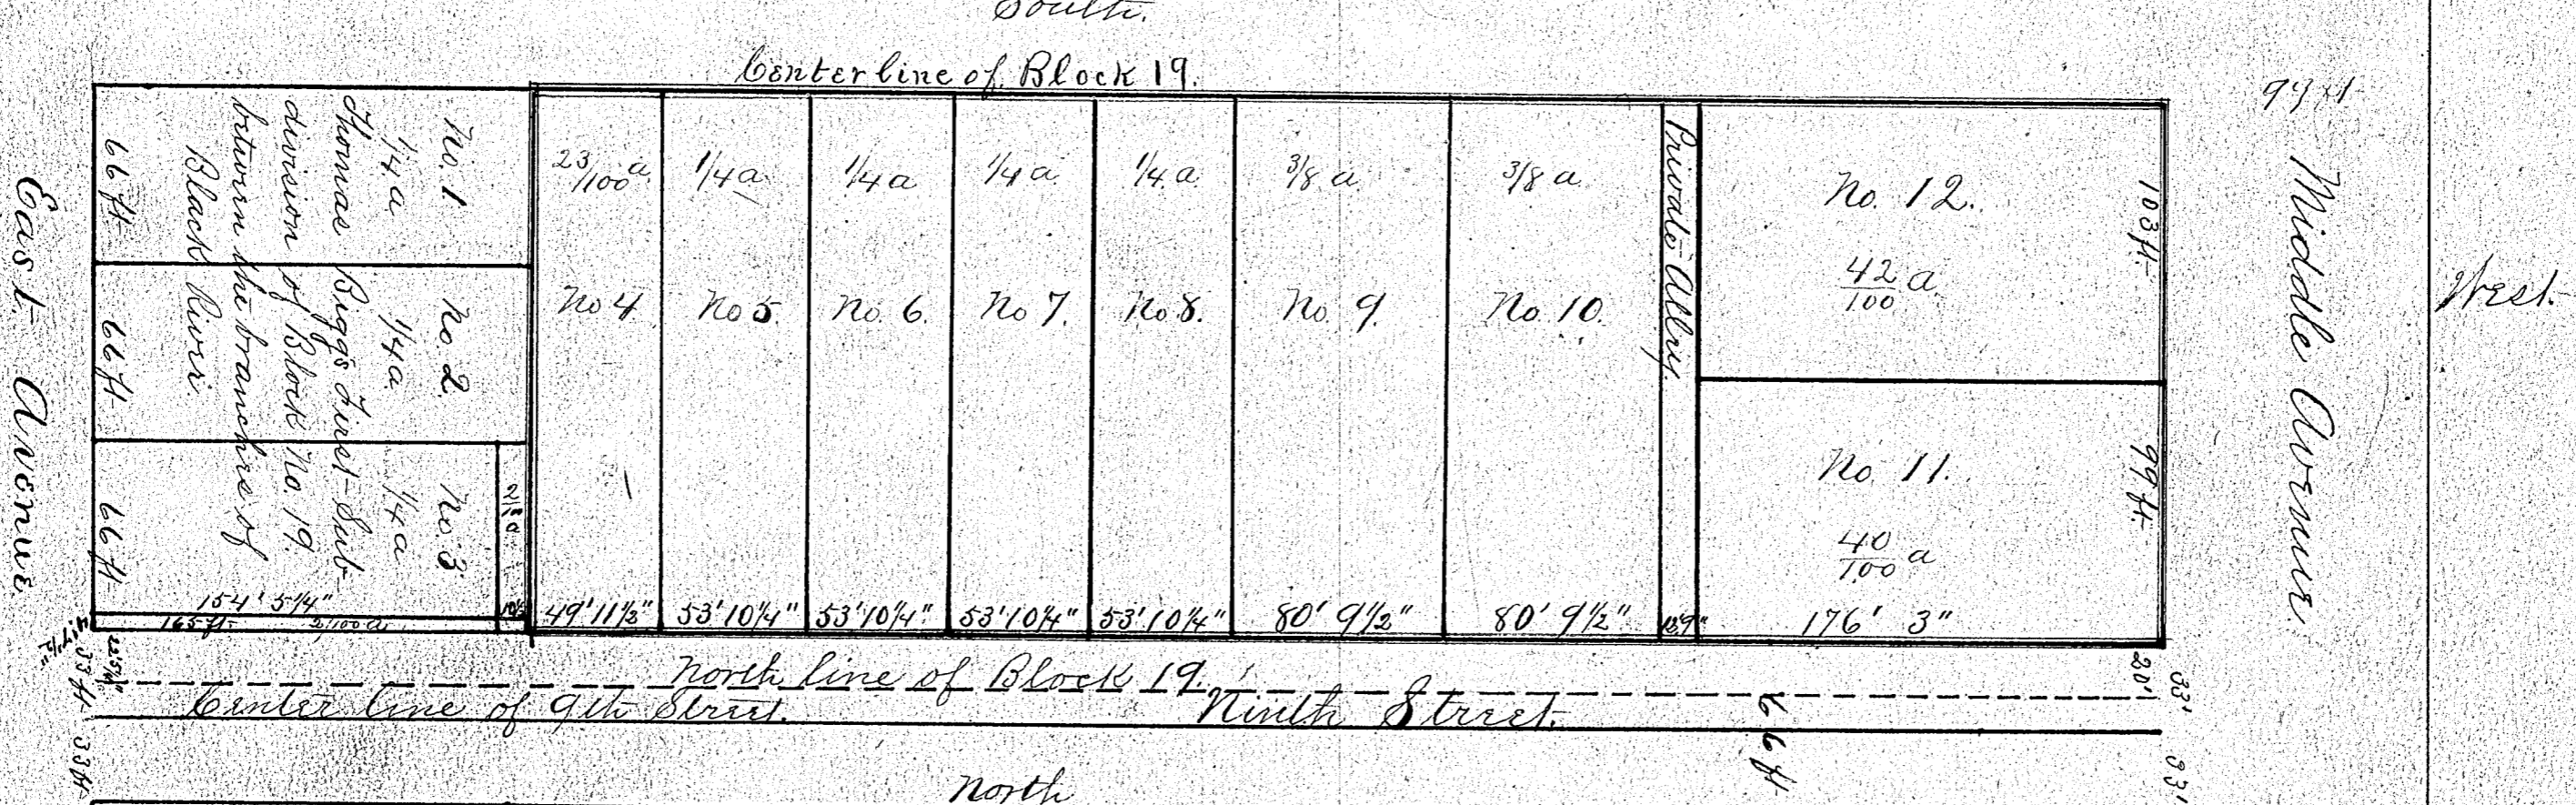 South.
Center line of Block 19.
East Avenue
66 ft
66 ft
66 ft
No. 1
1/4 a
No 2.
1/4 a
No 3
1/4 a
Thomas Biggs First Sub-
division of Block No. 19.
between the branches of
Black River.
154' 5 1/4"
165 ft
2/100 a
23/100 a
No 4.
49' 11 1/2"
1/4 a
No 5.
53' 10 1/4"
1/4 a
No. 6.
53' 10 1/4"
1/4 a
No 7.
53' 10 1/4"
1/4 a.
No. 8.
53' 10 1/4"
3/8 a
No. 9.
80' 9 1/2"
3/8 a
No. 10.
80' 9 1/2"
Private Alley.
12'9"
No. 12.
42/100 a
103 ft
No 11.
40/100 a
99 ft
176' 3"
Middle Avenue.
West
North line of Block 19.
Center line of 9th Street.
Ninth Street.
33 ft
33 ft
66 ft
20'
33'
33'
North